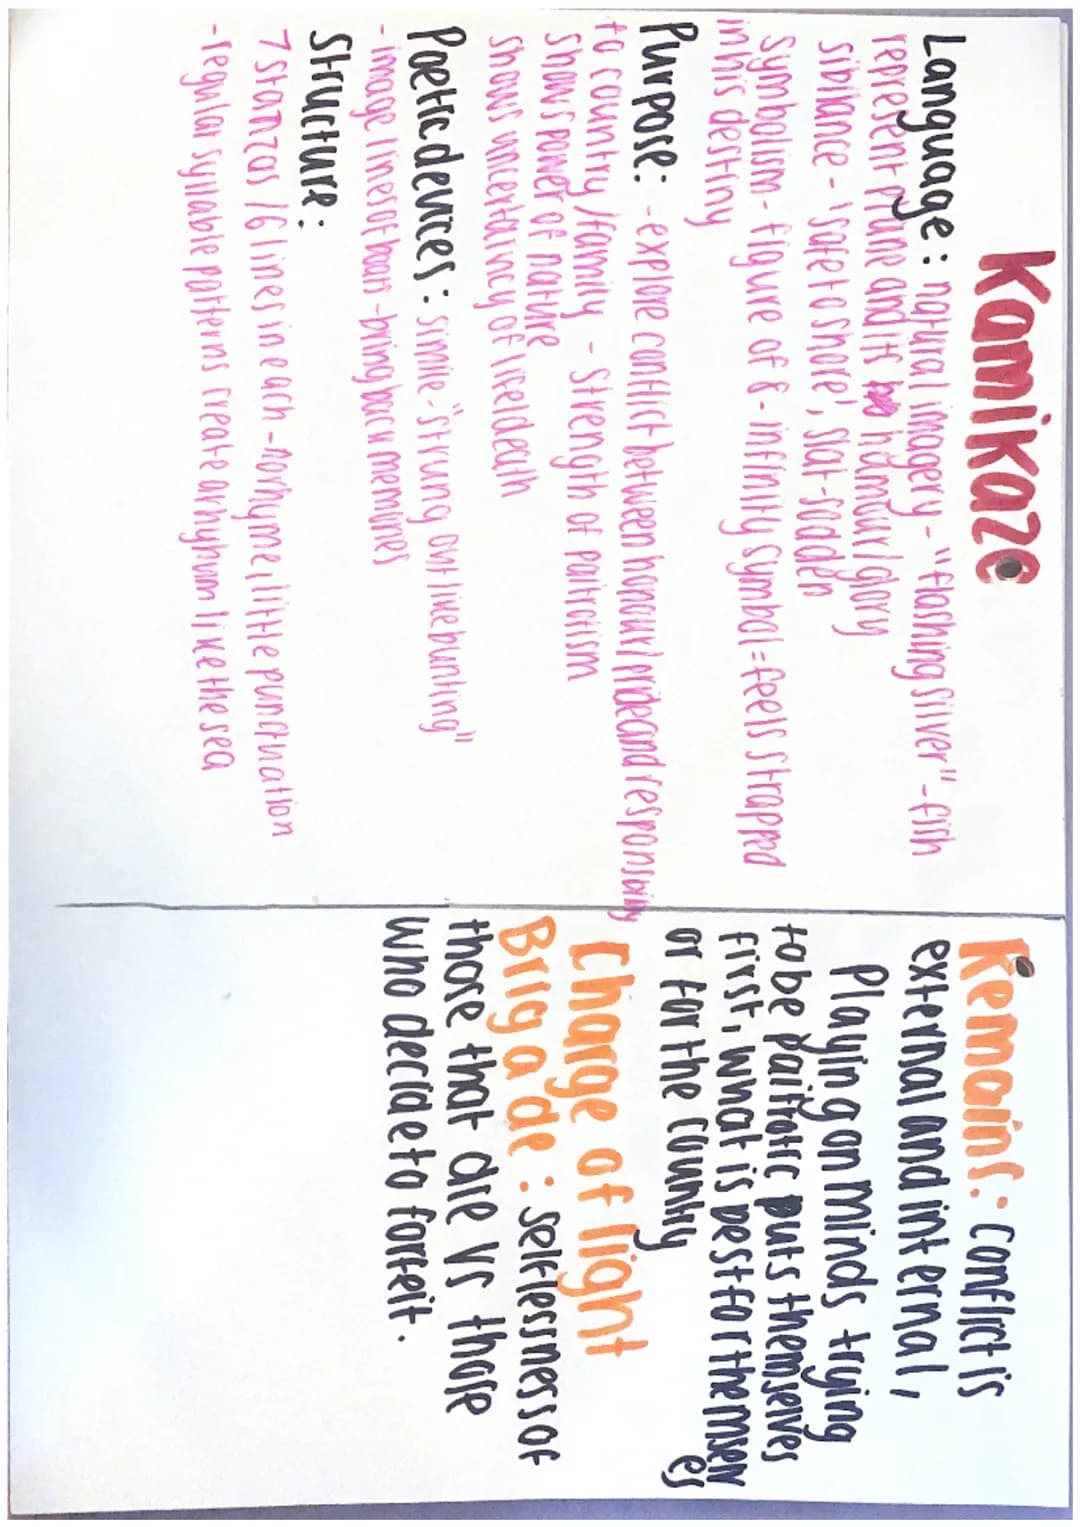 Kamikaze
Language: natural imagery - "flashing silver" - fish
represent plane and its honour/glory
siblance - 'safe to shore', slat-sodden
Symbolism - figure of 8 - infinity symbol = feels strapped
in his destiny
Purpose: - explore conflict between honour/pride and
to country/family - Strength of patriotism
shows power of nature
shows uncertaincy of life/death
Poetic devices: simile - "strung out like bunting"
- image lines of boats - bring back memories
Structure:
7 Stanzas / 6 lines in each - no rhyme, little punctuation
- regular syllable patterns create a rhythm like the sea
Remains: conflict is
external and internal,
Playing on minds trying
to be patriotic puts themselves
first, what is best for themselv
es
or for the country
Charge of light
Brigade: selflessness of
those that die vs those
who decide to forfeit.